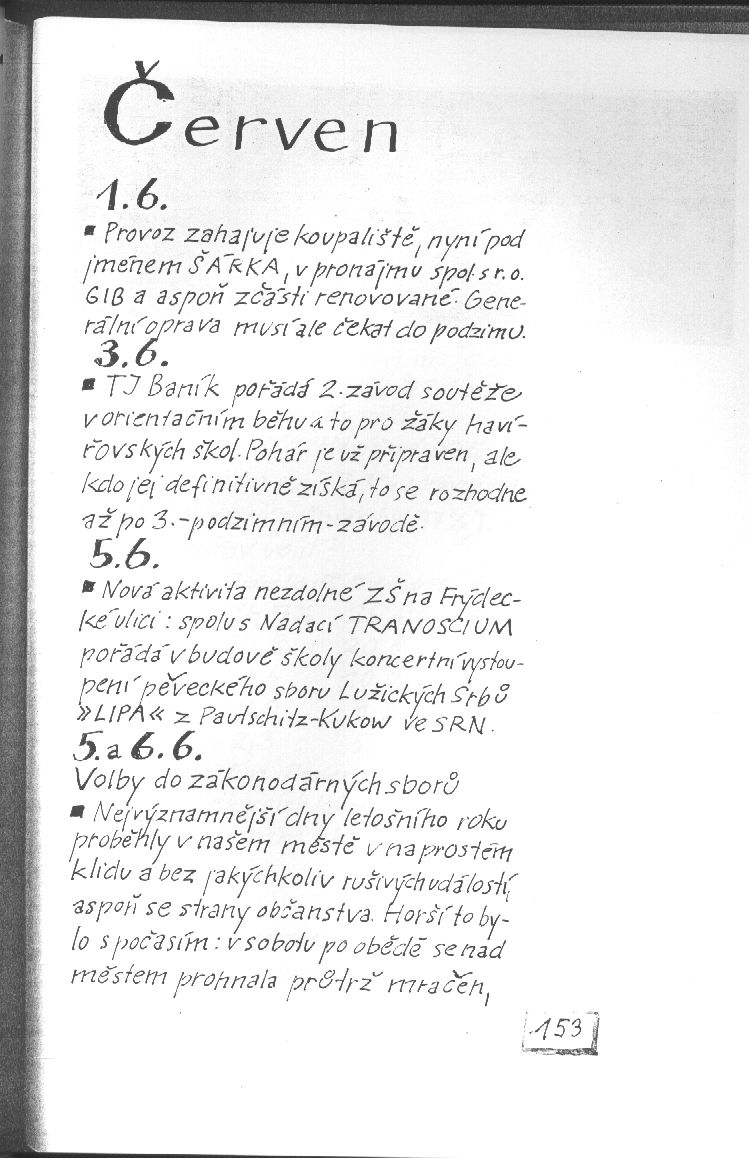 Červen
1.6.
▪ Provoz zahajuje koupaliště, nyní pod
jménem ŠÁRKA, v pronájmu spol. s r. o.
GIB a aspoň zčásti renovované. Gene-
rální oprava musí ale čekat do podzimu.
3.6.
▪ TJ Baník pořádá 2. závod soutěže
v orientačním běhu a to pro žáky haví-
řovských škol. Pohár je už připraven, ale
kdo jej definitivně získá, to se rozhodne
až po 3. - podzimním - závodě.
5.6.
▪ Nová aktivita nezdolné ZŠ na Frýdec-
ké ulici : spolu s Nadací TRANOSCIUM
pořádá v budově školy koncertní vystou-
pení pěveckého sboru Lužických Srbů
»LIPA« z Pautschitz-Kukow ve SRN.
5. a 6. 6.
Volby do zákonodárných sborů
▪ Nejvýznamnější dny letošního roku
proběhly v našem městě v naprostém
klidu a bez jakýchkoliv rušivých událostí,
aspoň se strany občanstva. Horší to by-
lo s počasím : v sobotu po obědě se nad
městem prohnala průtrž mračen,
153